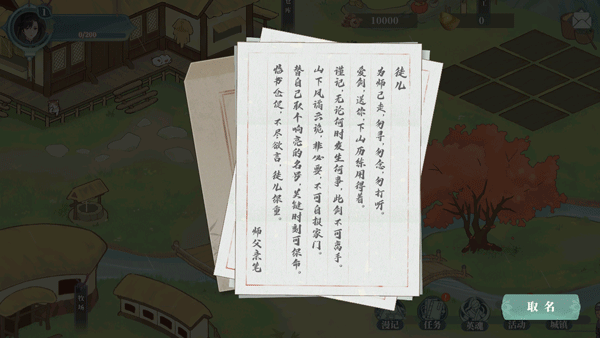 徒儿
为师已走，勿寻，勿念，勿打听。
爱剑送你，下山历练用得着。
谨记，无论何时发生何事，此剑不可离手。
山下风谲云诡，非必要，不可自报家门。
替自己取个响亮的名号，关键时刻可保命。
临书仓促，不尽欲言，徒儿保重。
师父亲笔
1
0/200
10000
0
牧场
漫记
任务
英魂
活动
城镇
取名